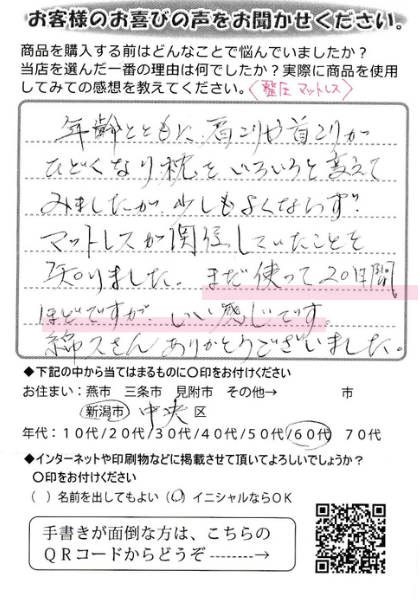 お客様のお喜びの声をお聞かせください。
商品を購入する前はどんなことで悩んでいましたか?
当店を選んだ一番の理由は何でしたか?実際に商品を使用
してみての感想を教えてください。〈整圧マットレス〉
年齢とともに、肩こりや首こりが
ひどくなり枕をいろいろと変えて
みましたが、少しもよくならず、
マットレスが関係していたことを
知りました。まだ使って20日間
ほどですが、いい感じです。
綿久さんありがとうございました。
◆下記の中から当てはまるものに○印をお付けください
お住まい:燕市 三条市 見附市 その他→ 市
新潟市 中央 区
年代:10代/20代/30代/40代/50代/60代 70代
◆インターネットや印刷物などに掲載させて頂いてよろしいでしょうか?
○印をお付けください
( )名前を出してもよい (○)イニシャルならOK
手書きが面倒な方は、こちらの
QRコードからどうぞ--------→